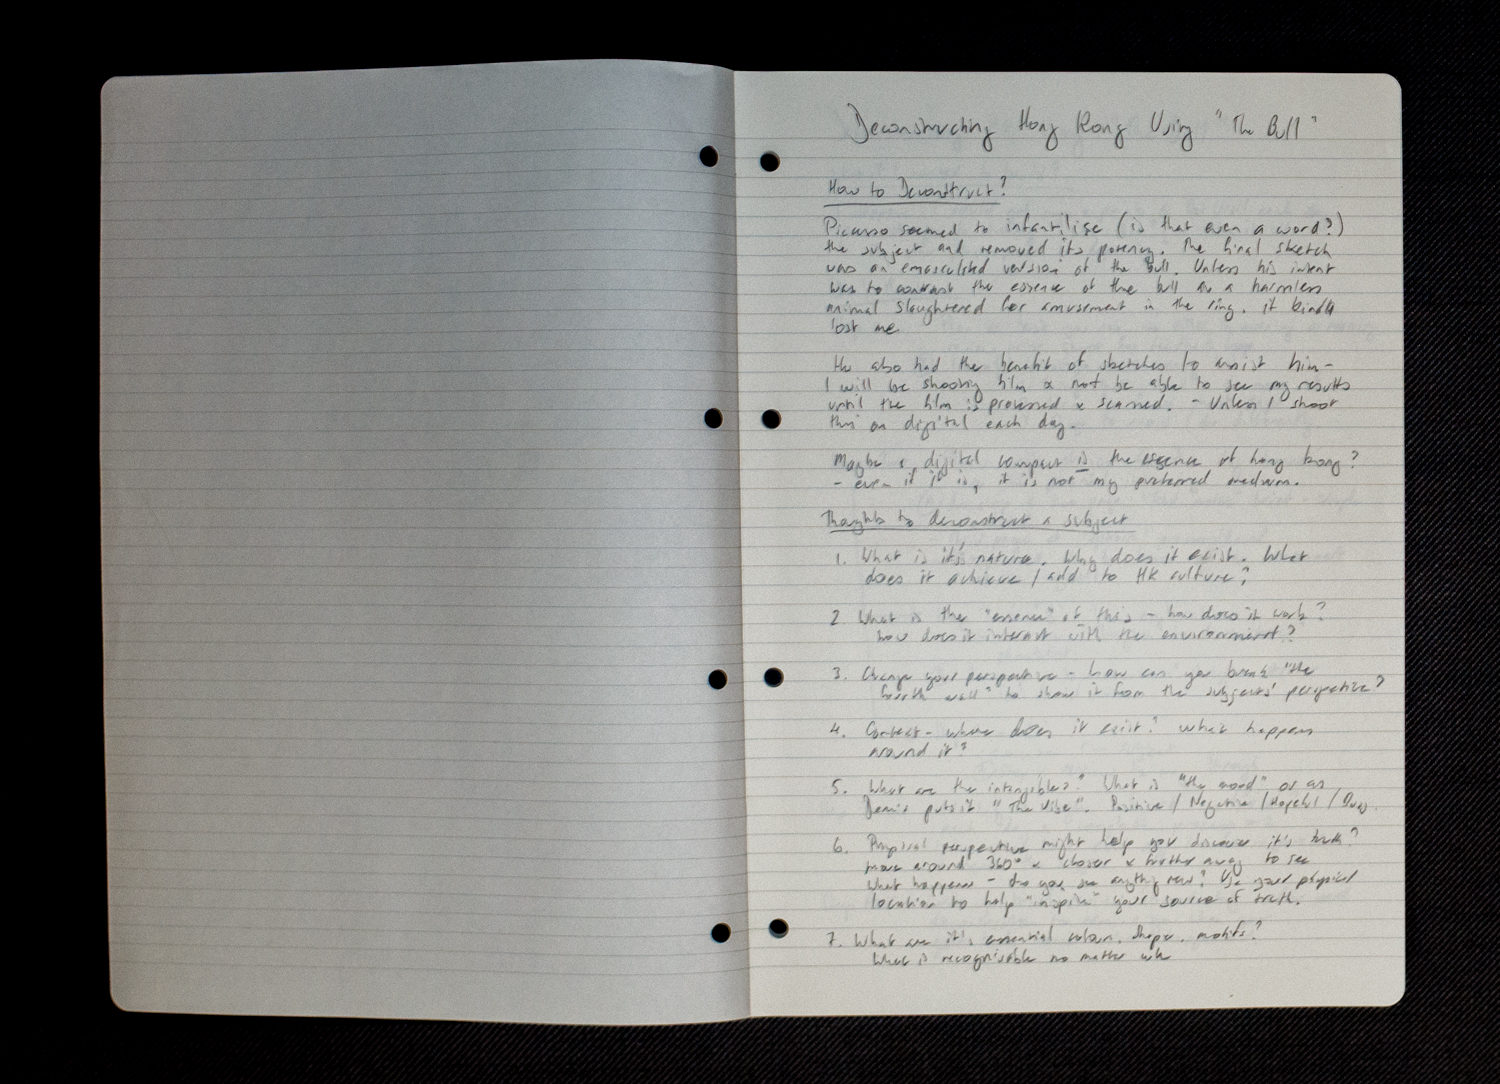 Deconstructing Hong Kong Using "The Bull"
How to Deconstruct?
Picasso seemed to infantilise (is that even a word?)
the subject and removed its potency. The final sketch
was an emasculated version of the bull. Unless his intent
was to contrast the essence of the bull as a harmless
animal slaughtered for amusement in the ring, it kinda
lost me
He also had the benefit of sketches to assist him -
I will be shooting film & not be able to see my results
until the film is processed & scanned. - Unless I shoot
this on digital each day.
Maybe a digital compact is the essence of hong kong?
- even if it is, it is not my preferred medium.
Thoughts to deconstruct a subject
1. What is it's nature. Why does it exist. What
does it achieve / add to HK culture?
2. What is the "essence" of this - how does it work?
how does it interact with the environment?
3. Change your perspective - how can you break "the
fourth wall" to show it from the subjects' perspective?
4. Context - where does it exist? What happens
around it?
5. What are the intangibles? What is "the mood" or as
puts it "The Vibe". Positive / Negative / Hopeful /
6. Physical perspective might help you discover it's truth?
move around 360° & closer & further away to see
what happens - do you see anything new? Use your physical
location to help "inspire" your source of truth.
7. What are it's essential colours, shapes, motifs?
What is recognisable no matter